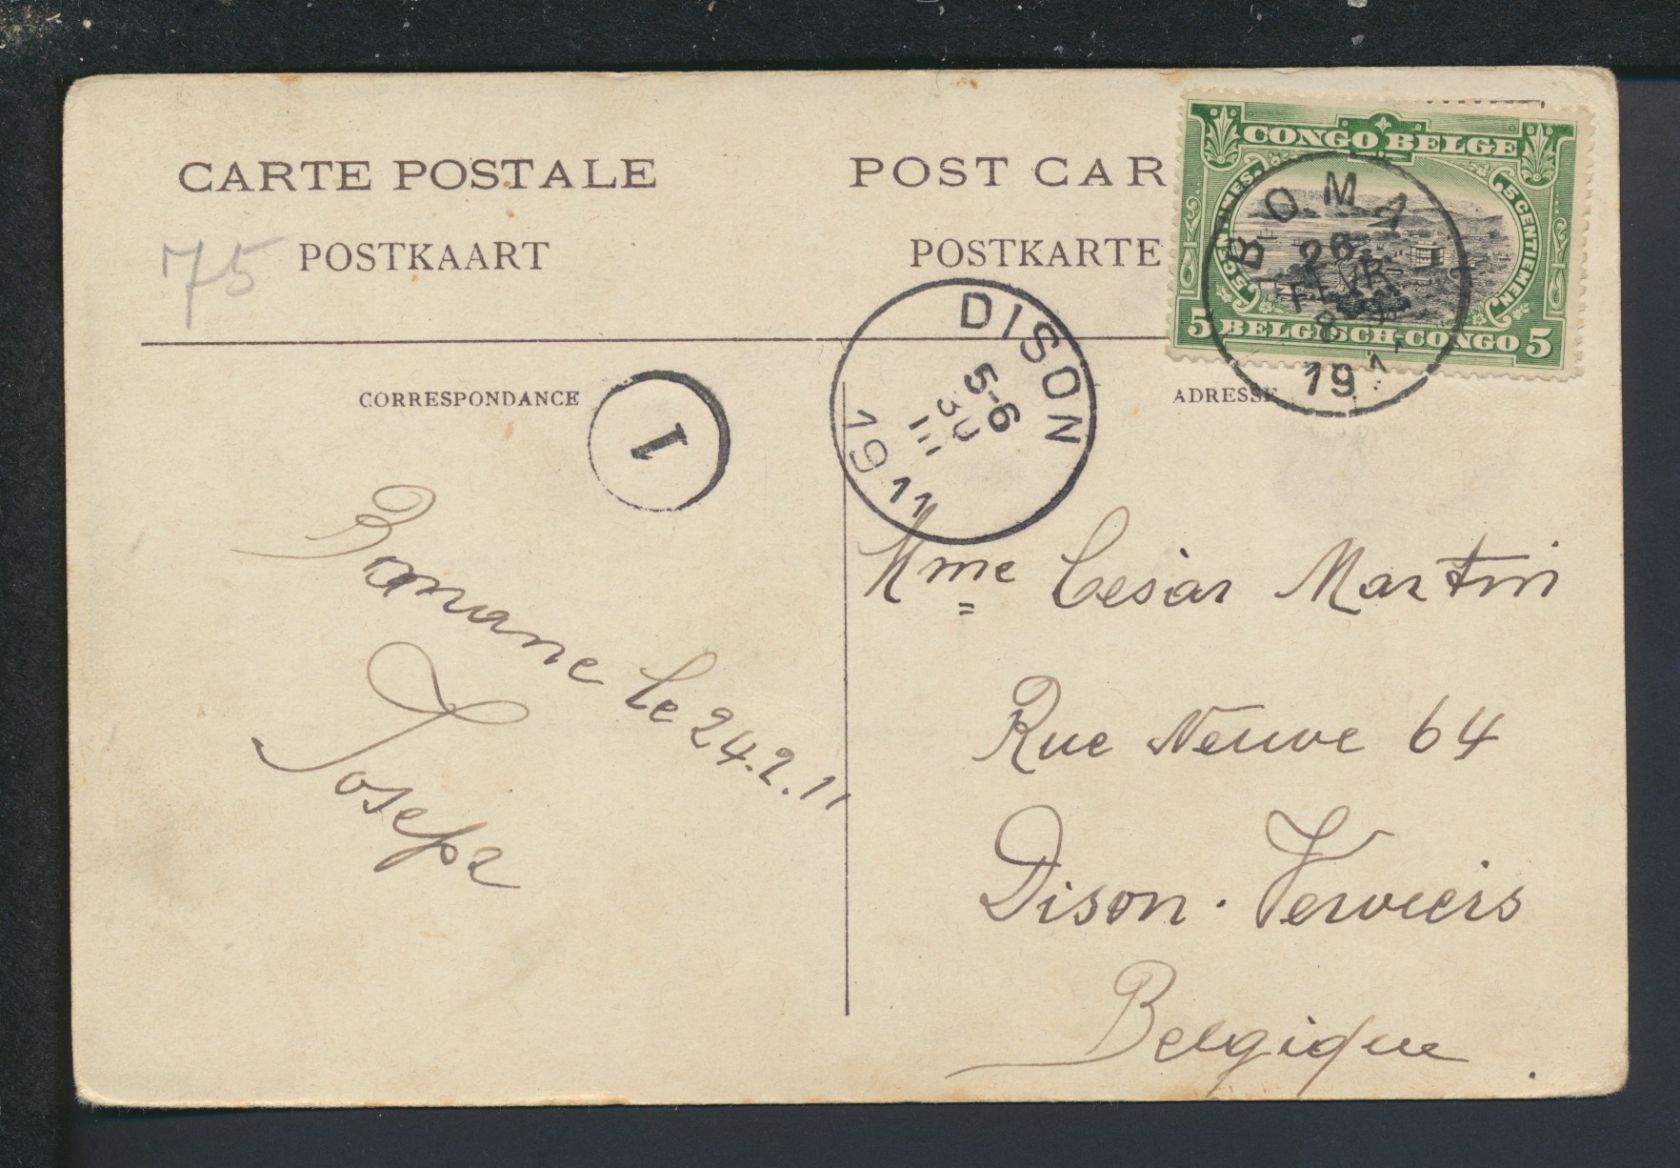 CARTE POSTALE
POST CAR
75
POSTKAART
POSTKARTE
CONGO BELGE
5 CENTIMES
5 CENTIEMEN
5 BELGISCH-CONGO 5
BOMA
26
FEVR
8
19
DISON
5-6
30
III
1911
CORRESPONDANCE
1
ADRESSE
Banane le 24.2.11
Joseph
Mme Cesar Martin
Rue Neuve 64
Dison. Verviers
Belgique